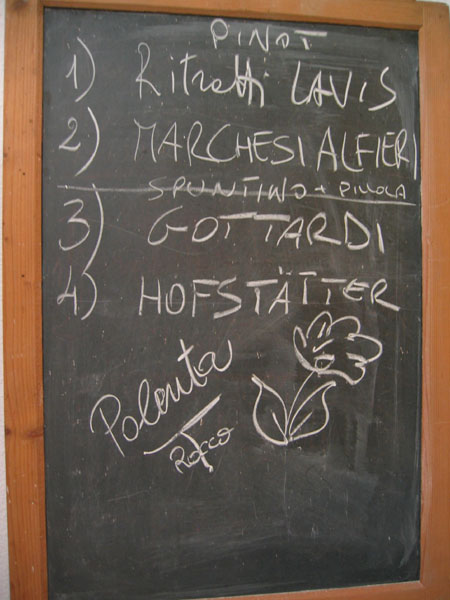 PINOT
1) Ritratti LAVIS
2) MARCHESI ALFIERI
SPUNTINO + PILLOLA
3) GOTTARDI
4) HOFSTÄTTER
Polenta
Rocco